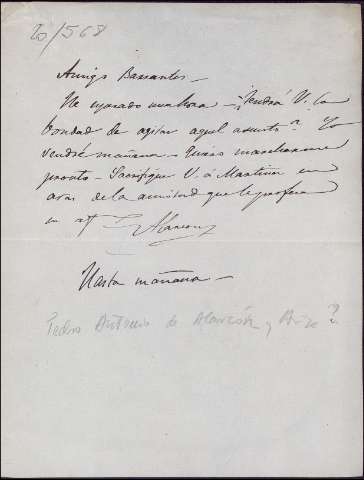 20/568
Amigo Barrantes –
He esperado una hora – ¿Tendrá V. la
bondad de agitar aquel asunto? Yo
vendré mañana – Quiero marcharme
pronto – Sacrifique V. á Martinez en
aras de la amistad que le profesa
su af
Alarcon
Hasta mañana –
Pedro Antonio de Alarcón y Ariza?